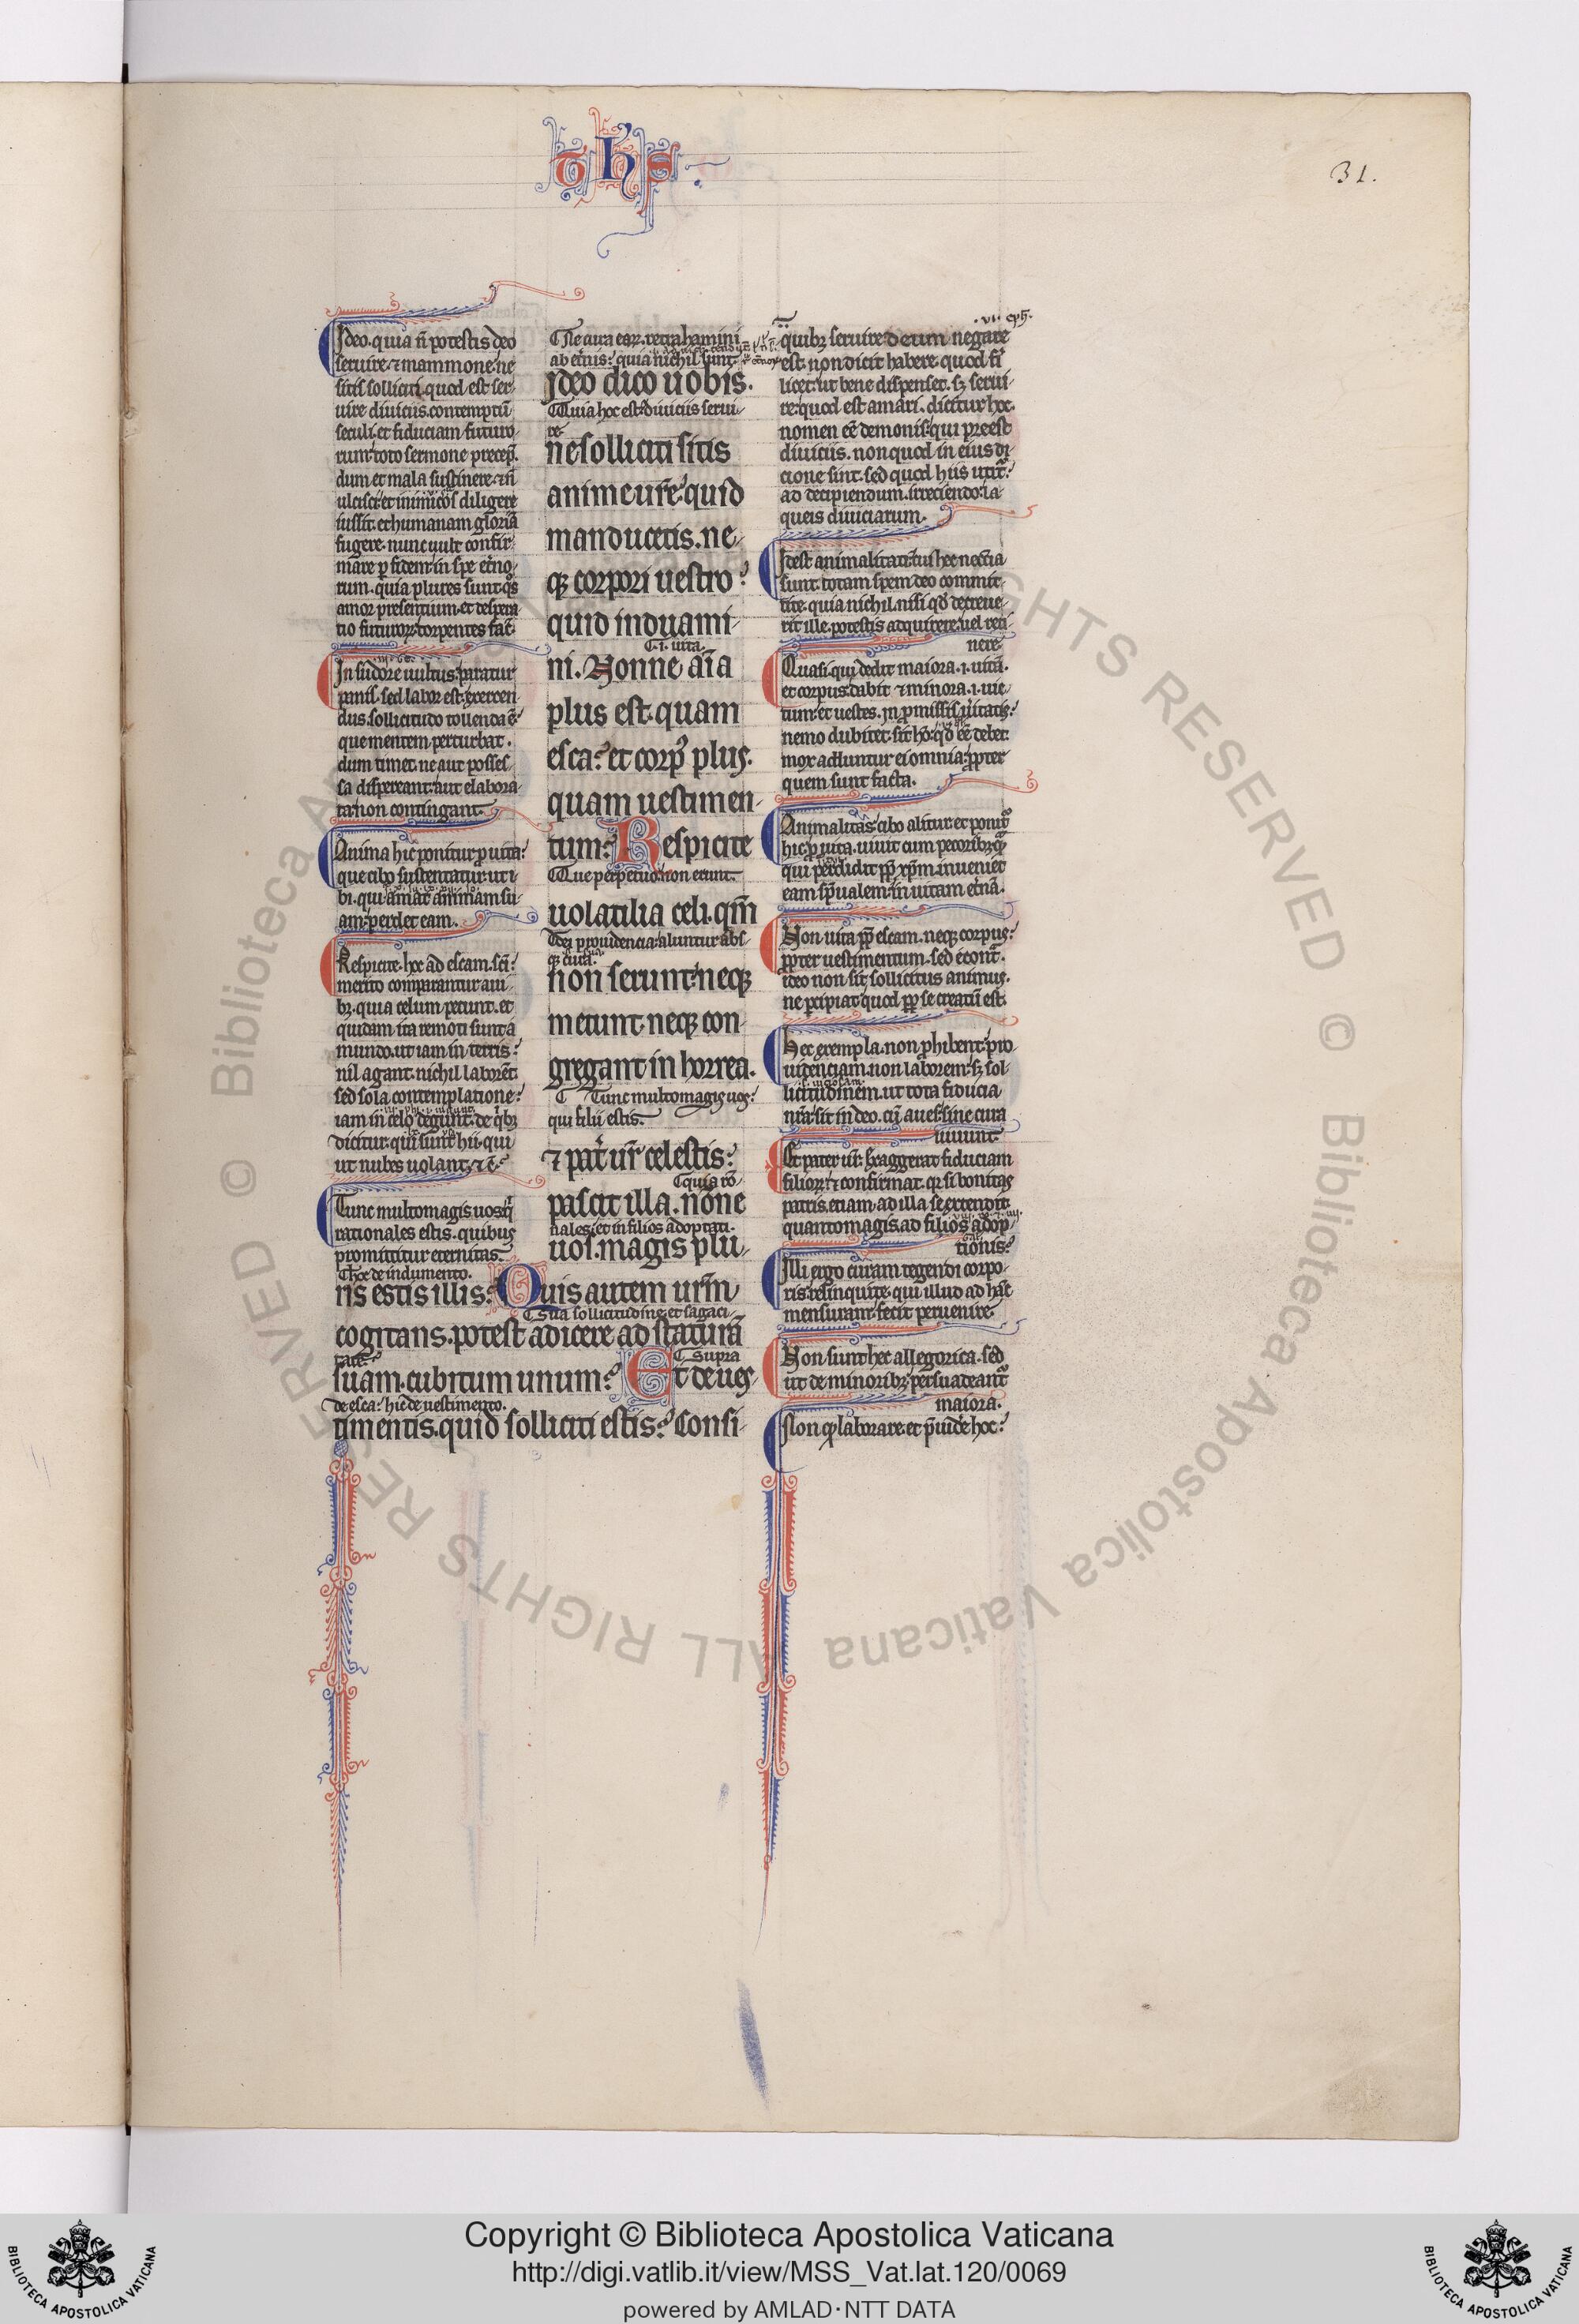 t h s
31.
Ideo. quia n̄ potestis deo
seruire ⁊ mammone. ne
sitis solliciti. quod est ser
uire diuiciis. contemptū
seculi. et fiduciam futuro
rum. toto sermone precep̄.
dum et mala sustinere. ⁊ n̄
ulcisci. et inimicos diligere
iussit. et humanam gloriā
fugere. nunc uult confir
mare p fidem. in spe et̄no
rum. quia plures sunt q̊s
amor presentium. et despera
tio futuroꝝ. torpentes fac̄.
In sudore uultus. paratur
panis. sed labor est exercen
dus. sollicitudo tollenda ē.
que mentem perturbat.
dum timet. ne aut posses
sa dispereant. aut elabora
ta non contingant.
Anima hic ponitur p uita.
que cibo sustentatur. ut i
bi. qui amat animam su
am. perdet eam.
Respicite. hoc ad escam. sc̄i.
merito comparantur aui
bꝫ. quia celum petunt. et
quidam ita remoti sunt a
mundo. ut iam in terris.
nil agant. nichil laborēt.
sed sola contemplatione.
iam in celo degunt. de qͥbꝫ
dicitur. qui sunt hii. qui
ut nubes uolant. ⁊ c̄.
Tunc multo magis uos. qͥ
rationales estis. quibus
promittitur eternitas.
Ne cura eaꝝ. retrahamini
ab et̄nis. quia nichil sunt.
Ideo dico uobis.
Quia hoc est diuiciis serui
re.
ne solliciti sitis
anime ur̄e. quid
manducetis. ne
qꝫ corpori uestro
quid induami
.i. uita.
ni. Nonne aīa
plus est. quam
esca. et corpꝰ plus.
quam uestimen
tum. Respicite
Que perpetuo non erunt.
uolatilia celi. qm̄
Dei prouidencia aluntur abs
qꝫ cura sua.
non serunt. neqꝫ
metunt. neqꝫ con
gregant in horrea.
Tunc multo magis uos.
qui filii estis.
⁊ pat̄ ur̄ celestis.
quia rō
pascit illa. nōne
nales. et in filios adoptati.
uos. magis plu
hoc de indumento.
ris estis illis. Quis autem ur̄m
Sua sollicitudine et sagaci
cogitans. potest adicere ad staturā
tate.
Supra
suam. cubitum unum. Et de ues
de esca. hic de uestimento.
timentis. quid solliciti estis. Consi
.vi. eph.
quibꝫ seruire deum negare
est. non dicit habere. quod si
licet. ut bene dispenset. sꝫ serui
re. quod est amari. dicitur hoc
nomen eē demonis. qui preest
diuiciis. non quod in eius di
cione sint. sed quod hiis utit̄.
ad decipiendum. irreciendo. la
queis diuiciarum.
Idest animalitati. cuius hec nec̄cia
sunt. totam spem deo commit
tite. quia nichil. nisi qd̄ decreue
rit ille. potestis adquirere uel reti
nere
Quasi. qui dedit maiora .i. uitā.
et corpus. dabit ⁊ minora .i. uic
tum. et uestes. In p̄missis uitatis.
nemo dubitet. sit hō. qd̄ eē debet.
mox adduntur ei omnia. ppter
quem sunt facta.
Animalitas cibo alitur. et ponit̄
hic p uita. uiuit cum pecoribꝫ.
qui perdidit pp̄ xp̄m. inueniet
eam. sp̄ualem. in uitam et̄nā.
Non uita pp̄ escam. neqꝫ corpus.
ppter uestimentum. sed econt̄.
ideo non sit sollicitus animus.
ne p̄cipiat quod pp̄ se creatū est.
Hec exempla. non phibent. pro
uidenciam. non laborem. sꝫ sol
licitudinem. ut tota fiducia
nr̄a. sit in deo. cū aues. sine cura
uiuunt
Et pater ur̄. Exaggerat fiduciam
filioꝝ. ⁊ confirmat. qꝛ si bonitas
patris. etiam ad illa se extendit.
quanto magis. ad filios adop
tionis.
Illi ergo curam tegendi corpo
ris relinquite. qui illud ad hāc
mensuram. fecit peruenire.
Non sunt hec allegorica. sed
ut de minoribꝫ. persuadeant̄
maiora.
Non ꝙ laborare. et p̄uide hoc.
Copyright © Biblioteca Apostolica Vaticana
http://digi.vatlib.it/view/MSS_Vat.lat.120/0069
powered by AMLAD·NTT DATA
BIBLIOTECA APOSTOLICA VATICANA
BIBLIOTECA APOSTOLICA VATICANA
© Biblioteca Apostolica Vaticana ALL RIGHTS RESERVED